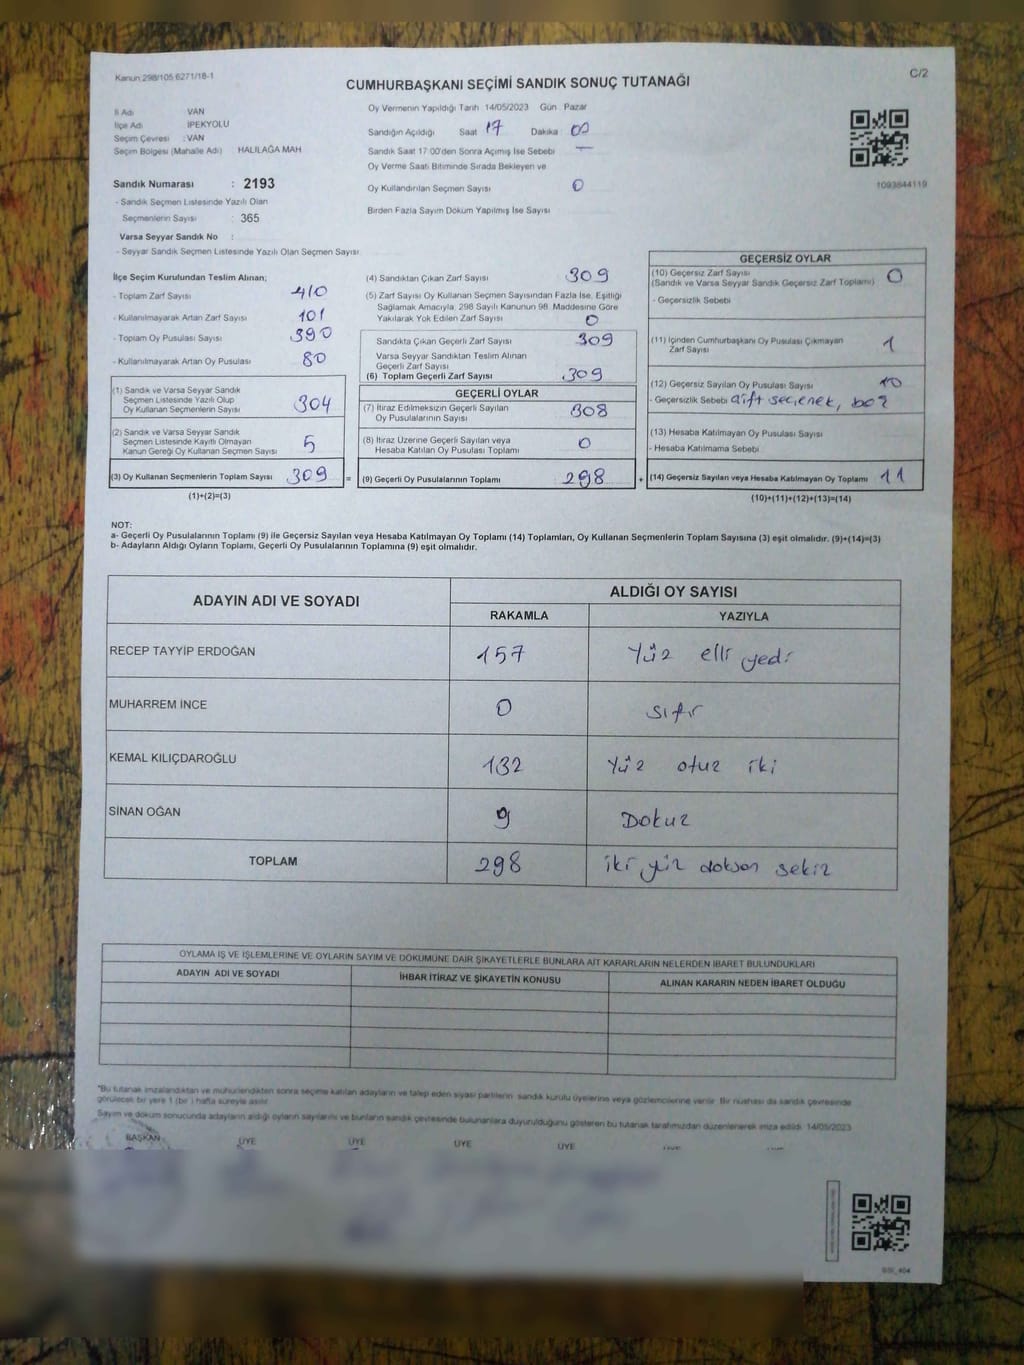 Kanun 298/105 6271/18-1
C/2
CUMHURBAŞKANI SEÇİMİ SANDIK SONUÇ TUTANAĞI
İl Adı VAN
İlçe Adı İPEKYOLU
Seçim Çevresi : VAN
Seçim Bölgesi (Mahalle Adı) : HALİLAĞA MAH.
Sandık Numarası : 2193
- Sandık Seçmen Listesinde Yazılı Olan
Seçmenlerin Sayısı : 365
Varsa Seyyar Sandık No :
- Seyyar Sandık Seçmen Listesinde Yazılı Olan Seçmen Sayısı
Oy Vermenin Yapıldığı Tarih 14/05/2023 Gün Pazar
Sandığın Açıldığı Saat 17 Dakika 00
Sandık Saat 17:00'den Sonra Açımış İse Sebebi —
Oy Verme Saati Bitiminde Sırada Bekleyen ve
Oy Kullandırılan Seçmen Sayısı 0
Birden Fazla Sayım Döküm Yapılmış İse Sayısı
1093844119
İlçe Seçim Kurulundan Teslim Alınan;
- Toplam Zarf Sayısı 410
- Kullanılmayarak Artan Zarf Sayısı 101
- Toplam Oy Pusulası Sayısı 390
- Kullanılmayarak Artan Oy Pusulası 80
(1) Sandık ve Varsa Seyyar Sandık
Seçmen Listesinde Yazılı Olup
Oy Kullanan Seçmenlerin Sayısı 304
(2) Sandık ve Varsa Seyyar Sandık
Seçmen Listesinde Kayıtlı Olmayan
Kanun Gereği Oy Kullanan Seçmen Sayısı 5
(3) Oy Kullanan Seçmenlerin Toplam Sayısı 309 =
(1)+(2)=(3)
(4) Sandıktan Çıkan Zarf Sayısı 309
(5) Zarf Sayısı Oy Kullanan Seçmen Sayısından Fazla İse, Eşitliği
Sağlamak Amacıyla, 298 Sayılı Kanunun 98. Maddesine Göre
Yakılarak Yok Edilen Zarf Sayısı 0
Sandıkta Çıkan Geçerli Zarf Sayısı 309
Varsa Seyyar Sandıktan Teslim Alınan
Geçerli Zarf Sayısı
(6) Toplam Geçerli Zarf Sayısı 309
GEÇERLİ OYLAR
(7) İtiraz Edilmeksizin Geçerli Sayılan
Oy Pusulalarının Sayısı 308
(8) İtiraz Üzerine Geçerli Sayılan veya
Hesaba Katılan Oy Pusulası Toplamı 0
(9) Geçerli Oy Pusulalarının Toplamı 298 +
GEÇERSİZ OYLAR
(10) Geçersiz Zarf Sayısı 0
(Sandık ve Varsa Seyyar Sandık Geçersiz Zarf Toplamı)
- Geçersizlik Sebebi
(11) İçinden Cumhurbaşkanı Oy Pusulası Çıkmayan
Zarf Sayısı 1
(12) Geçersiz Sayılan Oy Pusulası Sayısı 10
- Geçersizlik Sebebi çift seçenek, boş
(13) Hesaba Katılmayan Oy Pusulası Sayısı
- Hesaba Katılmama Sebebi
(14) Geçersiz Sayılan veya Hesaba Katılmayan Oy Toplamı 11
(10)+(11)+(12)+(13)=(14)
NOT:
a- Geçerli Oy Pusulasının Toplamı (9) ile Geçersiz Sayılan veya Hesaba Katılmayan Oy Toplamı (14) Toplamları, Oy Kullanan Seçmenlerin Toplam Sayısına (3) eşit olmalıdır. (9)+(14)=(3)
b- Adayların Aldığı Oyların Toplamı, Geçerli Oy Pusulalarının Toplamına (9) eşit olmalıdır.
ADAYIN ADI VE SOYADI
ALDIĞI OY SAYISI
RAKAMLA YAZIYLA
RECEP TAYYİP ERDOĞAN 157 Yüz elli yedi
MUHARREM İNCE 0 sıfır
KEMAL KILIÇDAROĞLU 132 Yüz otuz iki
SİNAN OĞAN 9 Dokuz
TOPLAM 298 iki yüz doksan sekiz
OYLAMA İŞ VE İŞLEMLERİNE VE OYLARIN SAYIM VE DÖKÜMÜNE DAİR ŞİKAYETLERLE BUNLARA AİT KARARLARIN NELERDEN İBARET BULUNDUKLARI
ADAYIN ADI VE SOYADI İHBAR İTİRAZ VE ŞİKAYETİN KONUSU ALINAN KARARIN NEDEN İBARET OLDUĞU
*Bu tutanak imzalandıktan ve mühürlendikten sonra seçime katılan adayların ve talep eden siyasi partilerin sandık kurulu üyelerine veya gözlemcilerine verilir. Bir nüshası da sandık çevresinde
görülecek bir yere 1 (bir) hafta süreyle asılır.
Sayım ve döküm sonucunda adayların aldığı oyların sayılarını ve bunların sandık çevresinde bulunanlara duyurulduğunu gösteren bu tutanak tarafımızdan düzenlenerek imza edildi. 14/05/2023
BAŞKAN ÜYE ÜYE ÜYE ÜYE